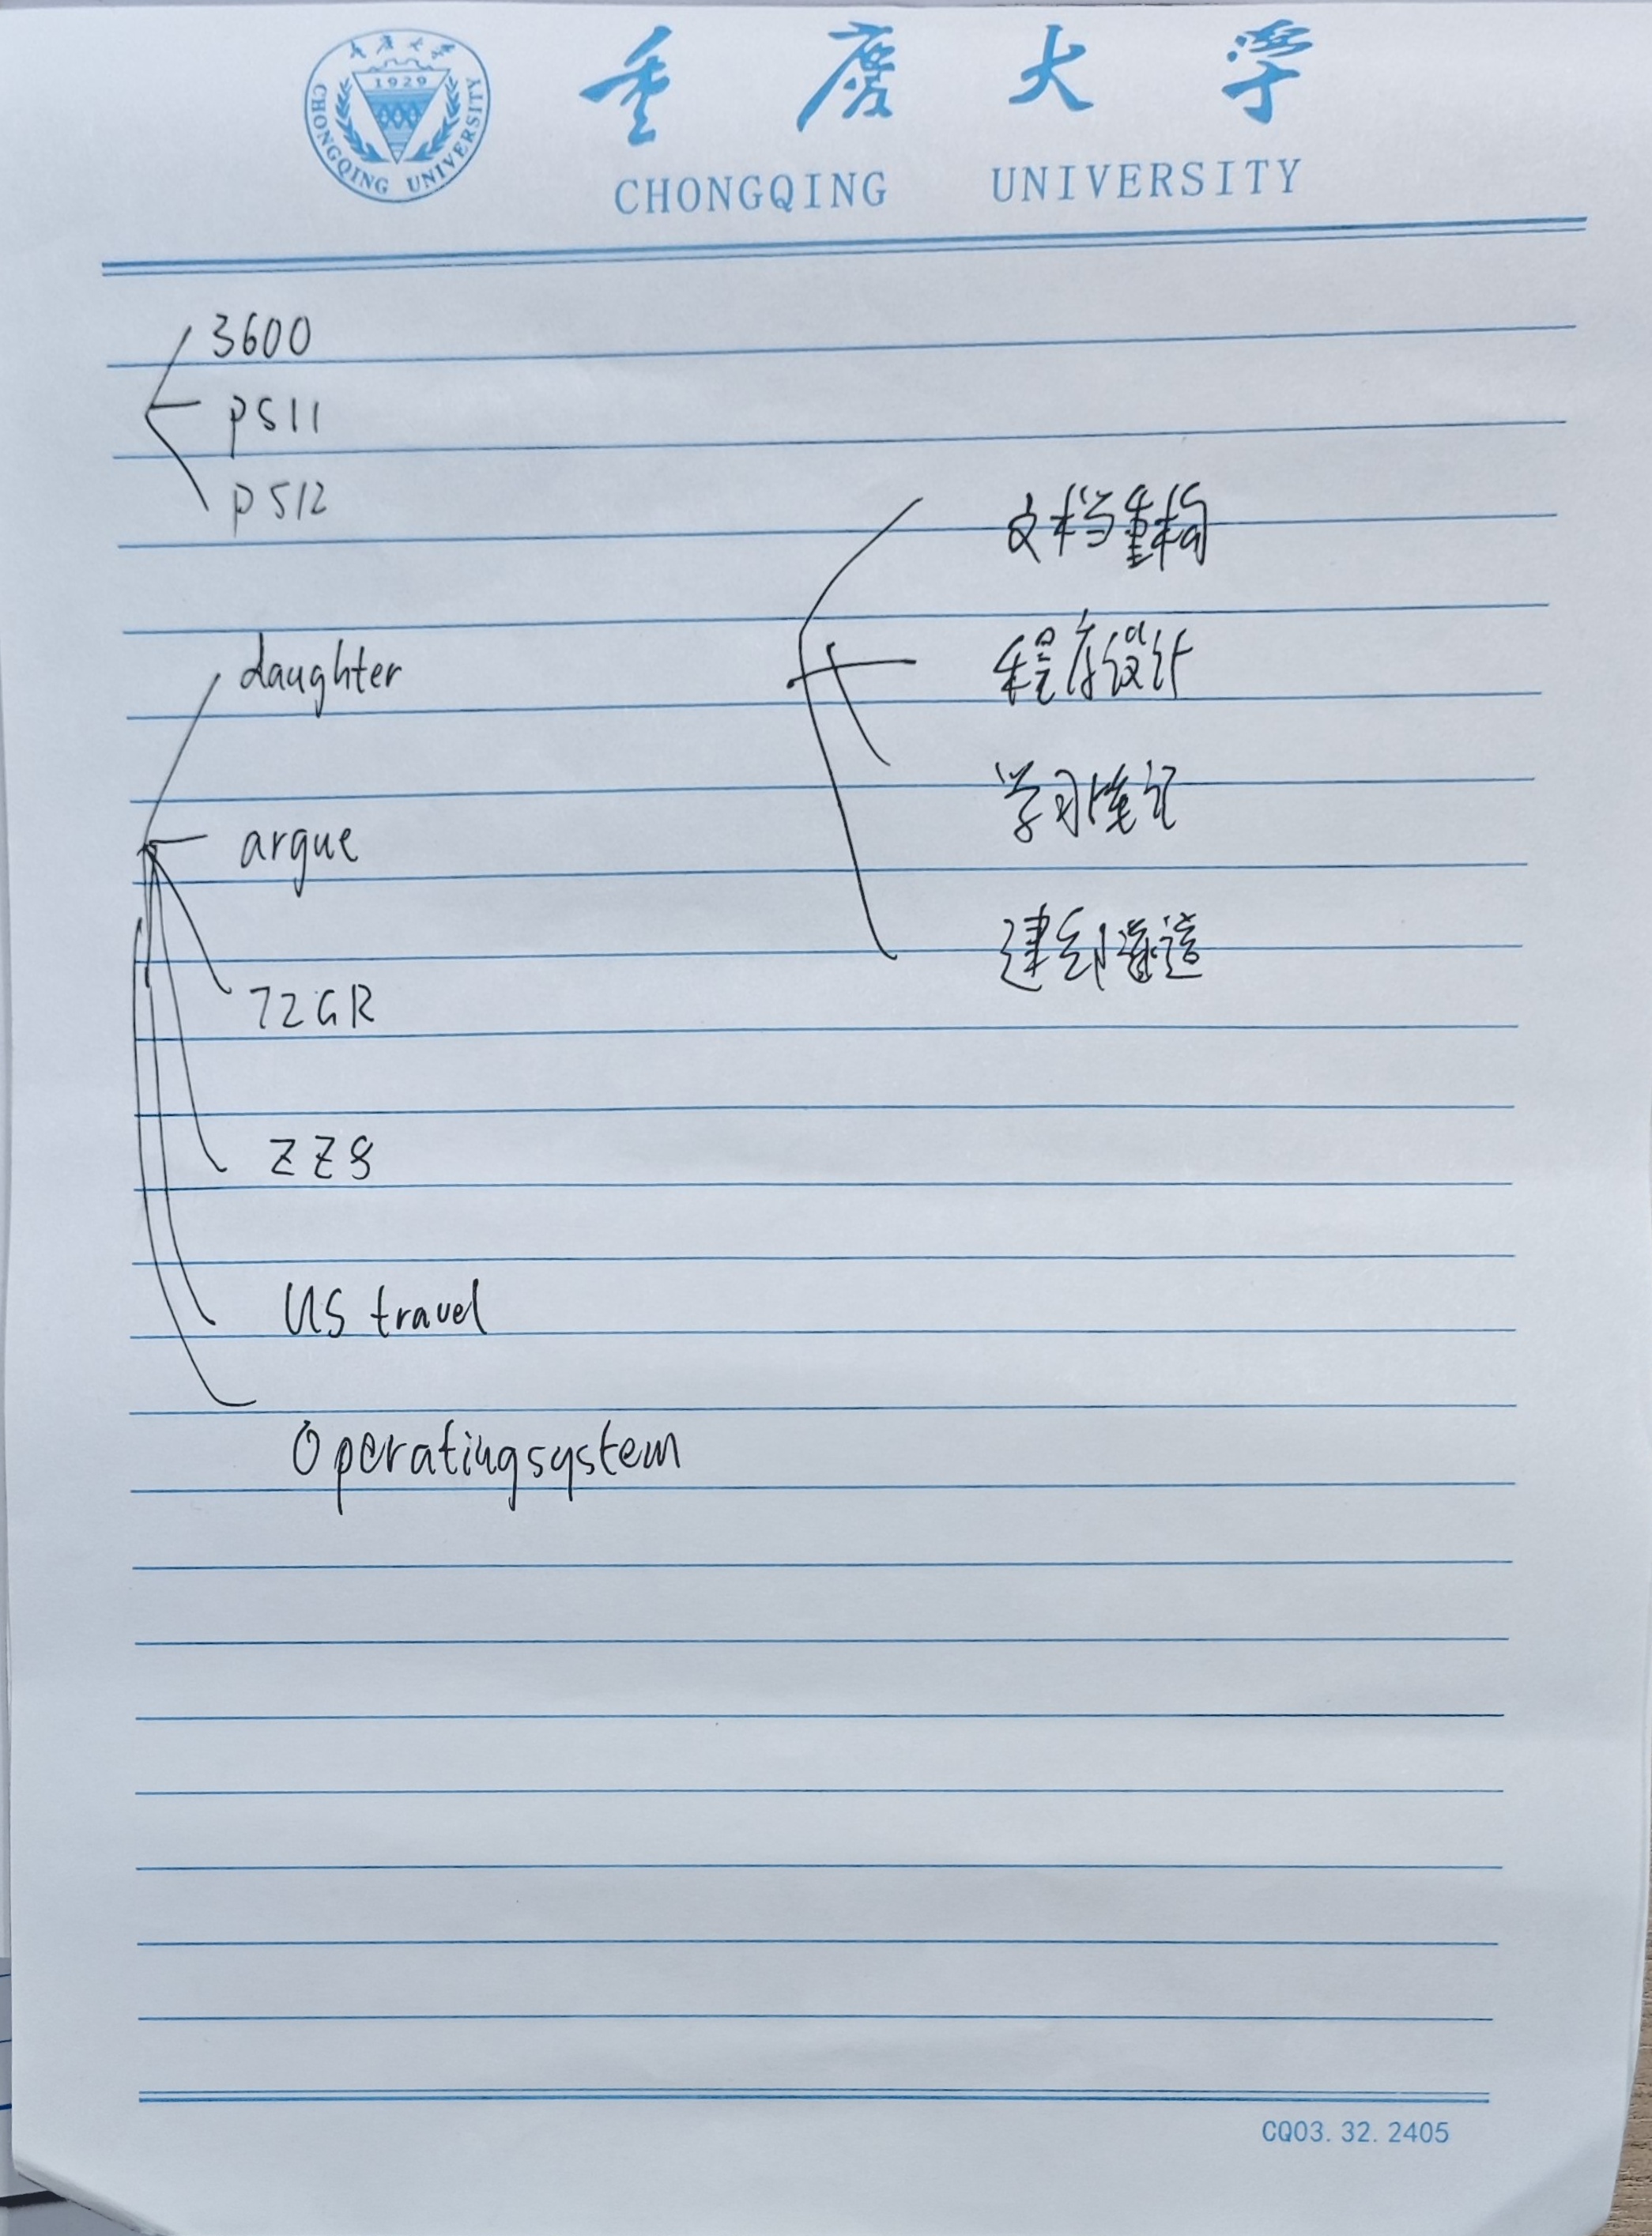 重庆大学
CHONGQING UNIVERSITY
1929
CHONGQING UNIVERSITY
3600
P511
P512
daughter
argue
72GR
ZZ8
US travel
Operatingsystem
文档重构
程序设计
学习笔记
建到
CQ03.32.2405